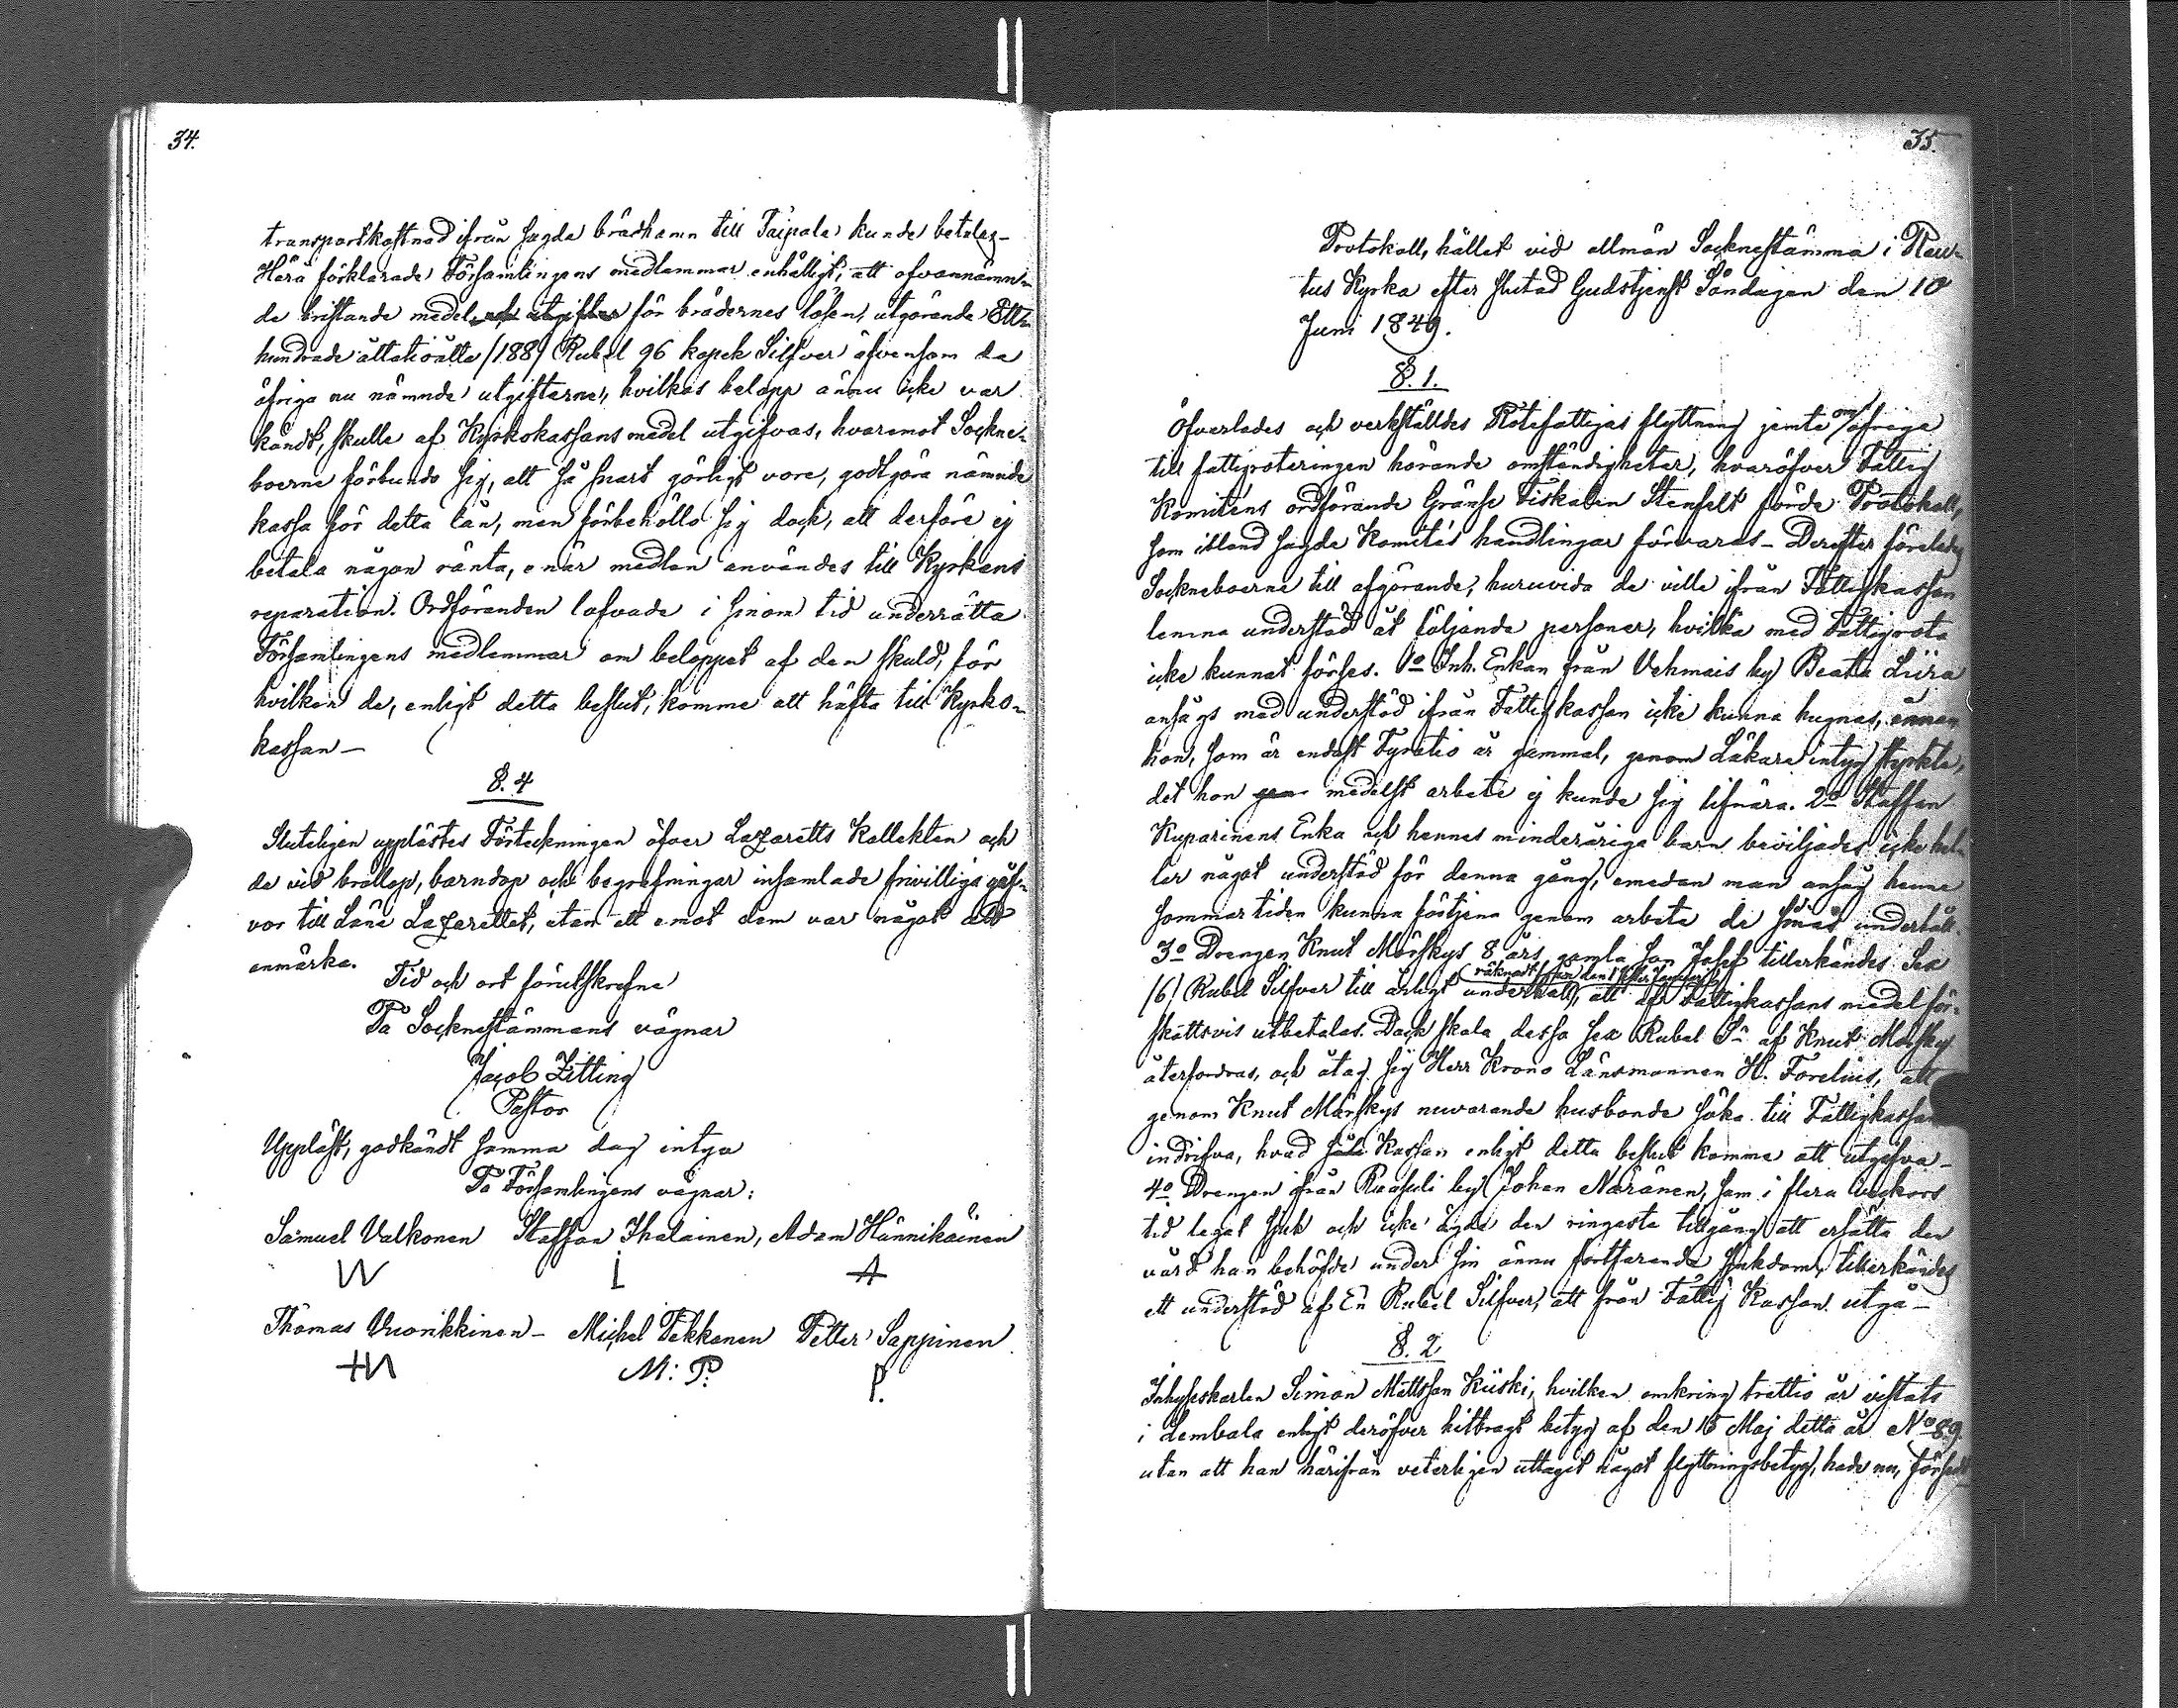 34.
transportkostnad ifrån sagda brädhamn till Taipale kunde betalas_
Härå förklarade Församlingens medlemmar enhälligt, att ofvannämn-
de bristande medel och utgifter för brädernes lösen, utgörande Ett-
hundrade åttatioåtta /188/ Rubel 96 kopek Silfver äfvensom de
öfriga nu nämnde utgifterne, hvilkas belopp ännu icke var
kändt, skulle af Kyrkokassans medel utgifvas, hvaremot Sockne-
boerne förbundo sig, att så snart görligt vore, godtgöra nämnde
kassa för detta lån, men förbehöllo sig dock, att derföre ej
betala någon ränta, enär medlen användes till Kyrkans
reparation. Ordföranden lofvade i sinom tid underrätta
Församlingens medlemmar om beloppet af den skuld, för
hvilken de, enligt detta beslut, komme att häfta till Kyrko-
kassan_
§. 4
Sluteligen upplästes Förteckningen öfver Lazaretts Kollekten och
de vid bröllop, barndop och begrafningar insamlade frivilliga gåf-
vor till Läne Lazarettet, utan att emot dem var något att
anmärka.
Tid och ort förutskrefne
På Socknestämmans vägnar
Jacob Zitting
Pastor
Uppläst, godkändt samma dag intyga
På Församlingens vägnar:
Samuel Valkonen Staffan Ihalainen, Adam Hännikäinen
W I A
Thomas Vuorikkinen_ Michel Pekkanen Petter Sappinen
HN M: P: P.
35.
Protokoll, hållet vid allmän Sockneståmma i Rau-
tus Kyrka efter slutad Gudstjenst Söndagen den 10
Juni 1849.
§. 1.
Öfverlades och verkställdes Rotefattigas flyttning jemte öfriga
till fattigroteringen hörande omständigheter, hvaröfver Fattig
Komiténs ordförande Gränse Fiskalen Stenfelt förde Protokoll,
som ibland sagde Komités handlingar förvaras_ Derefter förelades
Sockneboerne till afgörande, huruvida de ville ifrån Fattigkassan
lemna understöd åt följande personer, hvilka med Fattigrota
icke kunnat förses. 1o Inh. Enkan från Vehmais by Beata Liira
ansågs med understöd ifrån Fattigkassan icke kunna hugnas, innan
hon, som är endast Fyratio år gammal, genom Läkare intyg styrkte,
det hon gen medelst arbete ej kunde sig lifnära. 2o Staffan
Kuparinens Enka och hennes minderåriga barn beviljades icke hel-
ler något understöd för denna gång, emedan man ansåg henne
sommartiden kunna förtjena genom arbete de sinas underhåll.
3o Drengen Knut Mörskys 8 års gamla son Josef tillerkändes Sex
räknadt från den 1 sistl. Januarii
/6/ Rubel Silfver till årligt underhåll, att af Fattigkassans medel för-
skottsvis utbetalas. Dock skola dessa sex Rubel Sr af Knut Mörsky
återfordras, och åtog sig Herr Krono Länsmannen H. Forelius, att
genom Knut Mörskys nuvarande husbonde söka till Fattigkassan
indrifva, hvad Kassan enligt detta beslut komme att utgifva_
4o Drengen ifrån Raasuli by Johan Näränen, som i flera veckors
tid legat sjuk och icke ägde den ringaste tillgång att ersätta den
vård han behöfde under sin ännu fortfarande sjukdom, tillerkändes
ett understöd af En Rubel Silfver, att från Fattig Kassan utgå_
§. 2
Inhyseskarlen Simon Mattsson Kiiski, hvilken omkring trettio år vistats
i Lembala enligt deröfver hitbragt betyg af den 15 Maj detta år No 89.
utan att han härifrån veterligen uttagit något flyttningsbetyg, hade nu, försedd